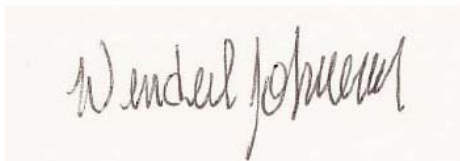 Wendell Johnson